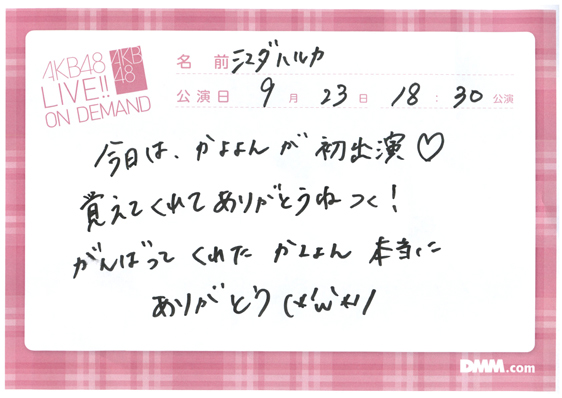 AKB48
LIVE!!
ON DEMAND
AKB
48
名 前 シエダハルカ
公演日 9 月 23 日 18 : 30 公演
今日は、かよよんが初出演♡
覚えてくれてありがとうねっ!
がんばってくれたかよよん 本当に
ありがとう (*'ω'*)
DMM.com